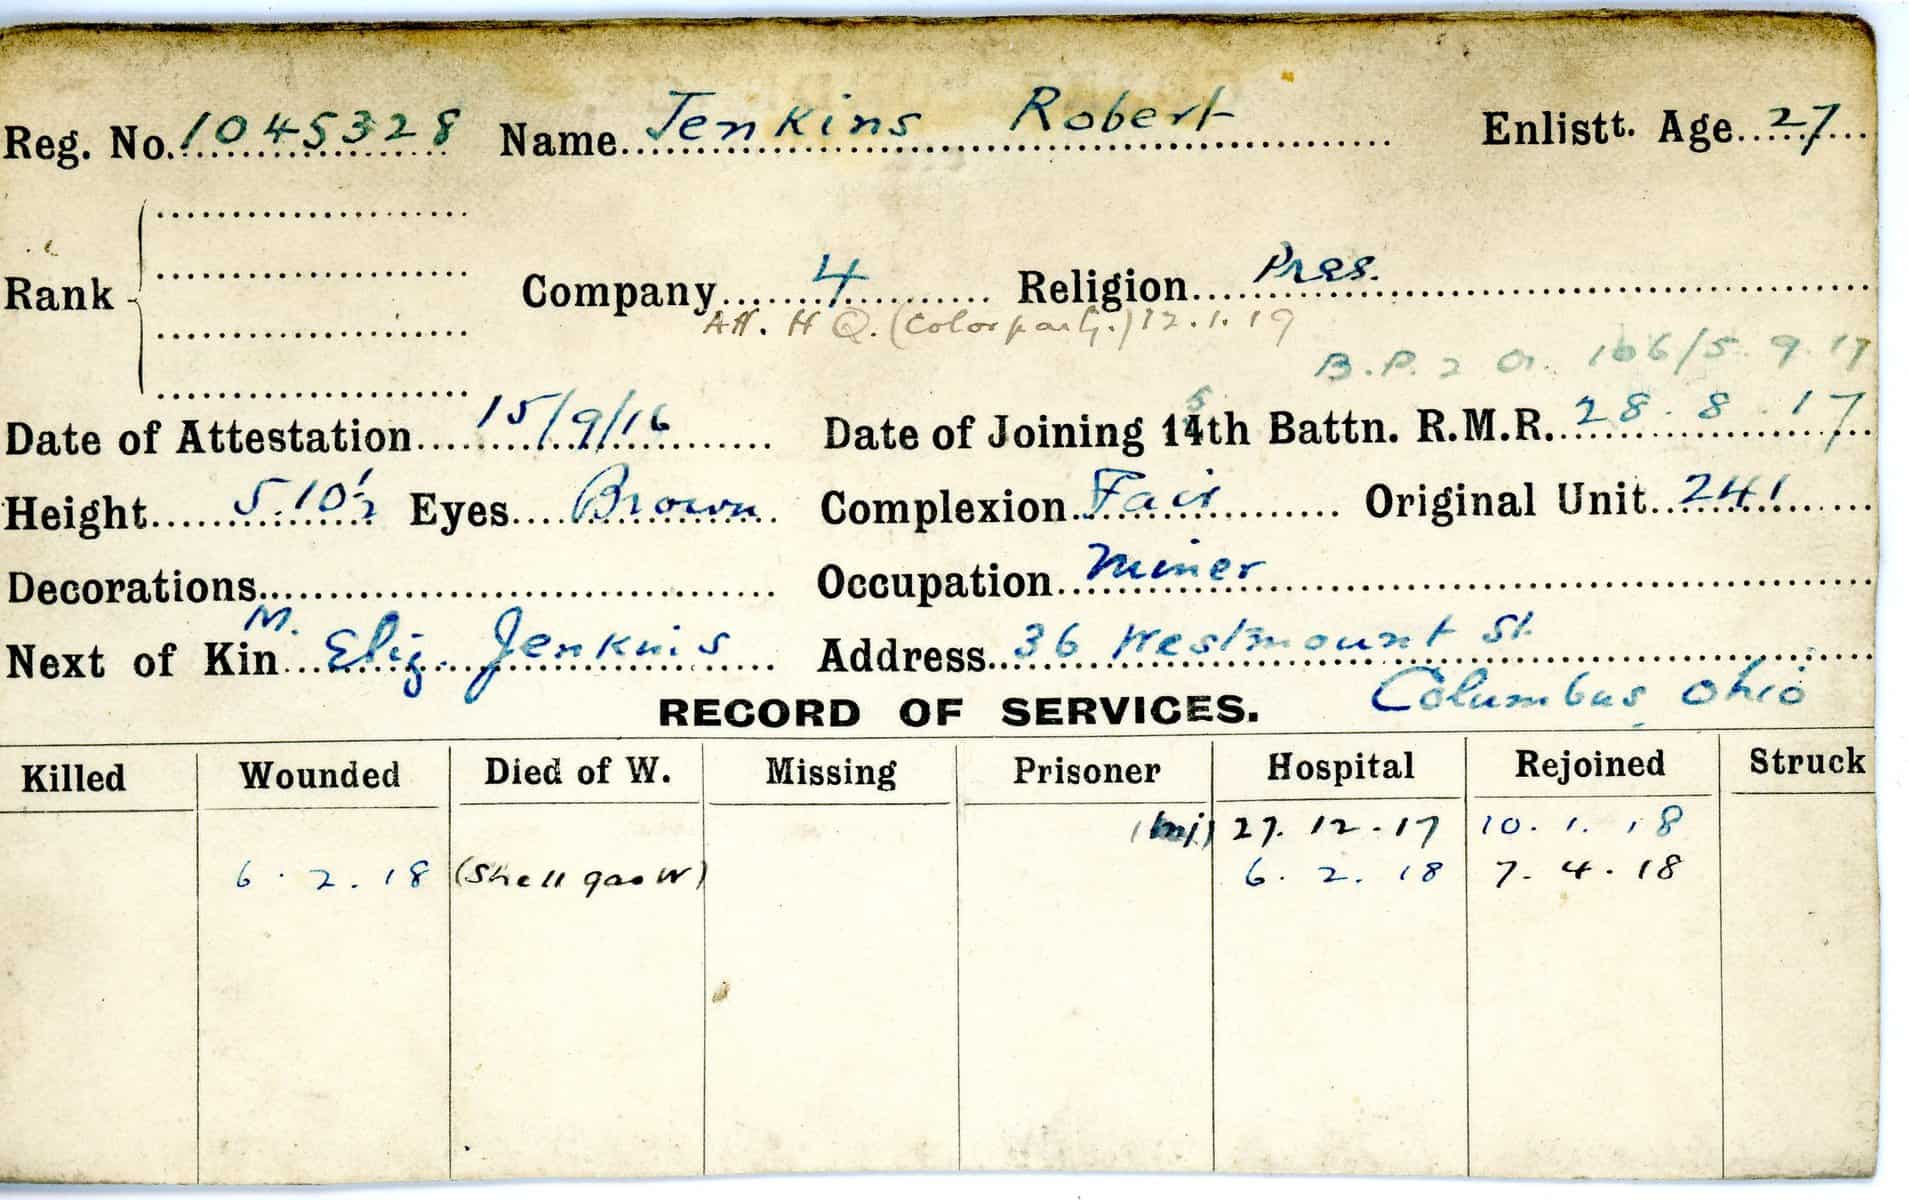 Reg. No. 1045328 Name Jenkins Robert Enlistt. Age 27
Rank
Company 4 Religion Pres.
Att. H Q. (Color party.) 12.1.19
B.P. 2 O. 166/5.9.17
Date of Attestation 15/9/16 Date of Joining 14th Battn. R.M.R. 28.8.17
Height 5.10½ Eyes Brown Complexion Fair Original Unit 241
Decorations Occupation Miner
M.
Next of Kin Eliz. Jenkins Address 36 Westmount St.
Columbus, Ohio
RECORD OF SERVICES.
Killed Wounded Died of W. Missing Prisoner Hospital Rejoined Struck
(Inj) 27.12.17 10.1.18
6.2.18 (Shell gas W) 6.2.18 7.4.18